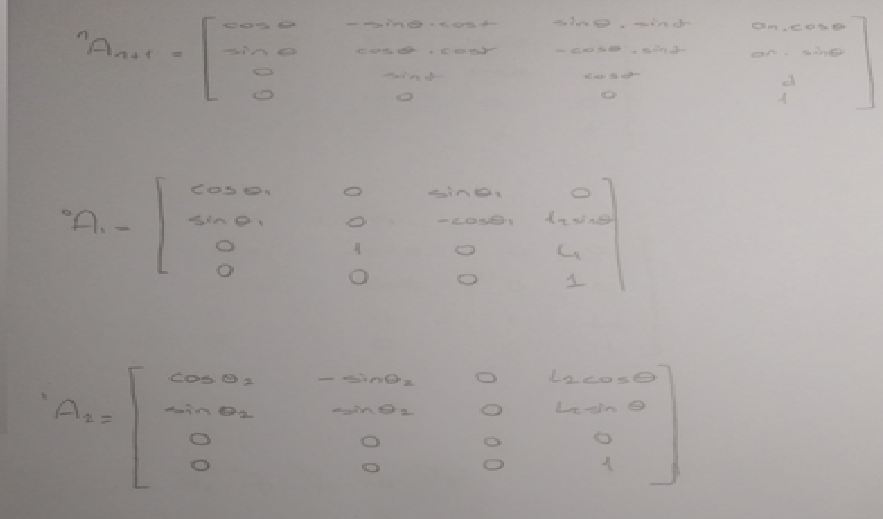 ⁿAₙ₊₁ = cosθ -sinθ.cosα sinθ.sinα an.cosθ
sinθ cosθ.cosα -cosθ.sinα an.sinθ
0 sinα cosα d
0 0 0 1
⁰A₁ = cosθ₁ 0 sinθ₁ 0
sinθ₁ 0 -cosθ₁ L₂sinθ
0 1 0 L₁
0 0 0 1
¹A₂ = cosθ₂ -sinθ₂ 0 L₂cosθ
sinθ₂ sinθ₂ 0 L₂sinθ
0 0 0 0
0 0 0 1